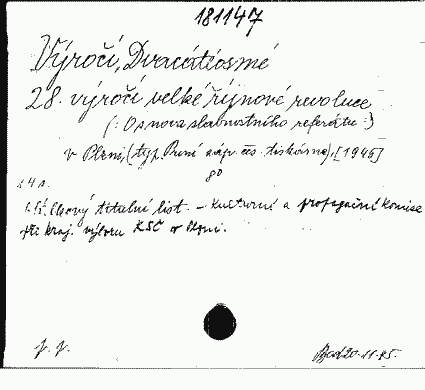 181147
Výročí, Dvacátéosmé
28. výročí velké říjnové revoluce
(: Osnova slavnostního referátu :)
v Plzni, (typ. První záp. čes. tiskárna), [1945]
8°
s. 4 s.
titulní list. - Kulturní a propagační komise
při kraj. výboru KSČ v Plzni.
20-11-85.